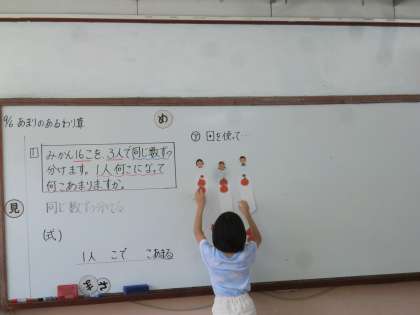 9/6 あまりのあるわり算
め
1 みかん16こを、3人で同じ数ずつ
分けます。1人何こになって
何こあまりますか。
見
同じ数ずつ分ける
(式)
1人 こで こあまる
を使って…